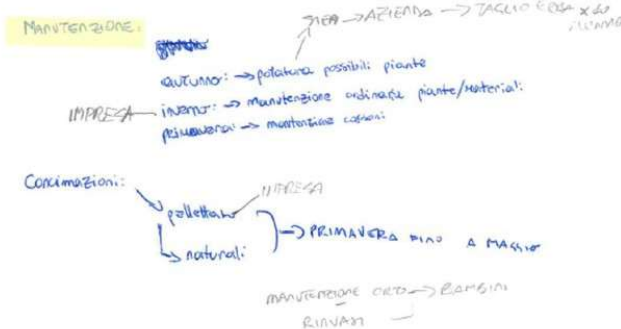 MANUTENZIONE:
AZIENDA → TAGLIO ERBA x
autunno: → potatura possibili piante
IMPRESA
inverno: → manutenzione ordinaria piante/materiali
primavera: → manutenzione cassoni
Concimazioni:
IMPRESA
pellettato
naturali
→ PRIMAVERA FINO A MAGGIO
MANUTENZIONE ORTO → BAMBINI
RINVASI